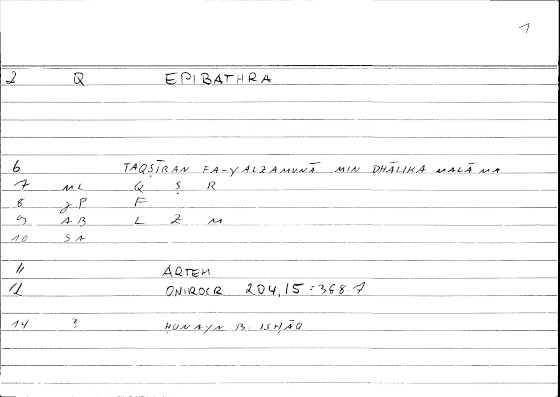 1
2 Q EPIBATHRA
6 TAQṢĪRAN FA-YALZAMUNĀ MIN DHĀLIKA MALĀMA
7 ML Q Ṣ R
8 γP F
9 AB L Z M
10 SA
11 ARTEM
12 ONIROCR 204,15 = 368.7
14 ? ḤUNAYN B. ISḤĀQ